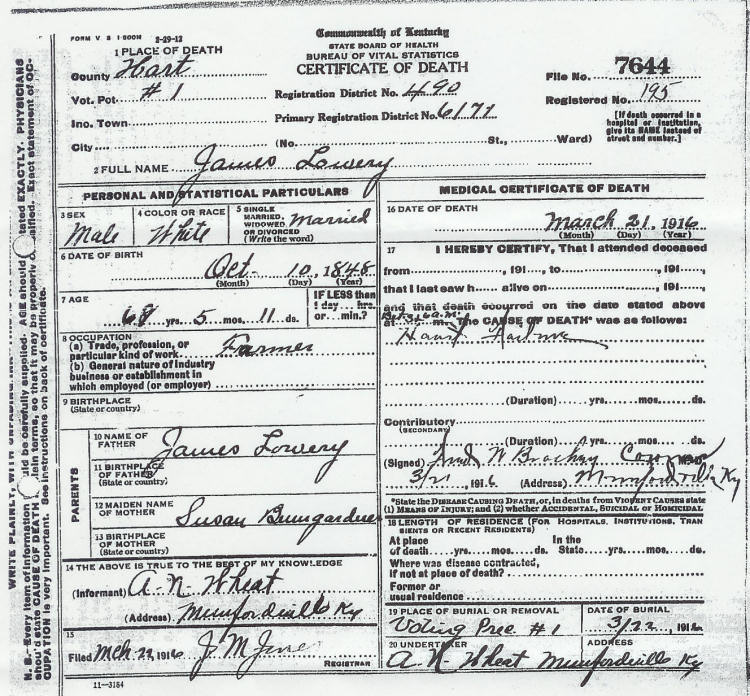 FORM V S 1-500M 2-29-12
Commonwealth of Kentucky
STATE BOARD OF HEALTH
BUREAU OF VITAL STATISTICS
CERTIFICATE OF DEATH
1 PLACE OF DEATH
County Hart
Vot. Pct. #1
Ino. Town
City (No. St., Ward)
Registration District No. 490
Primary Registration District No. 6177
File No. 7644
Registered No. 195
[If death occurred in a
hospital or institution,
give its NAME instead of
street and number.]
2 FULL NAME James Lowery
PERSONAL AND STATISTICAL PARTICULARS
3 SEX
Male
4 COLOR OR RACE
White
5 SINGLE
MARRIED,
WIDOWED
OR DIVORCED
(Write the word)
Married
6 DATE OF BIRTH
Oct- 10, 1848
(Month) (Day) (Year)
7 AGE
68 yrs. 5 mos. 11 ds.
IF LESS than
1 day... hrs.
or... min.?
8 OCCUPATION
(a) Trade, profession, or
particular kind of work Farmer
(b) General nature of industry
business or establishment in
which employed (or employer)
9 BIRTHPLACE
(State or country)
PARENTS
10 NAME OF
FATHER James Lowery
11 BIRTHPLACE
OF FATHER
(State or country)
12 MAIDEN NAME
OF MOTHER Susan Bumgardner
13 BIRTHPLACE
OF MOTHER
(State or country)
14 THE ABOVE IS TRUE TO THE BEST OF MY KNOWLEDGE
(Informant) A. N. Wheat
(Address) Munfordville Ky
15
Filed Mch 22 1916 J M
REGISTRAR
11-3184
MEDICAL CERTIFICATE OF DEATH
16 DATE OF DEATH
March 21, 1916
(Month) (Day) (Year)
17 I HEREBY CERTIFY, That I attended deceased
from , 191 , to , 191 ,
that I last saw h alive on , 191 ,
and that death occurred on the date stated above
at m. The CAUSE OF DEATH* was as follows:
(Duration) yrs. mos. ds.
Contributory
(SECONDARY)
(Duration) yrs. mos. ds.
(Signed) W
3/21, 1916 (Address) Munfordville Ky
*State the DISEASE CAUSING DEATH, or, in deaths from VIOLENT CAUSES state
(1) MEANS OF INJURY; and (2) whether ACCIDENTAL, SUICIDAL or HOMICIDAL
18 LENGTH OF RESIDENCE (FOR HOSPITALS, INSTITUTIONS, TRAN
SIENTS OR RECENT RESIDENTS)
At place In the
of death yrs. mos. ds. State yrs. mos. ds.
Where was disease contracted,
if not at place of death?
Former or
usual residence
19 PLACE OF BURIAL OR REMOVAL
Voting Prec. #1
DATE OF BURIAL
3/22, 1916
20 UNDERTAKER
A. N. Wheat
ADDRESS
Munfordville Ky